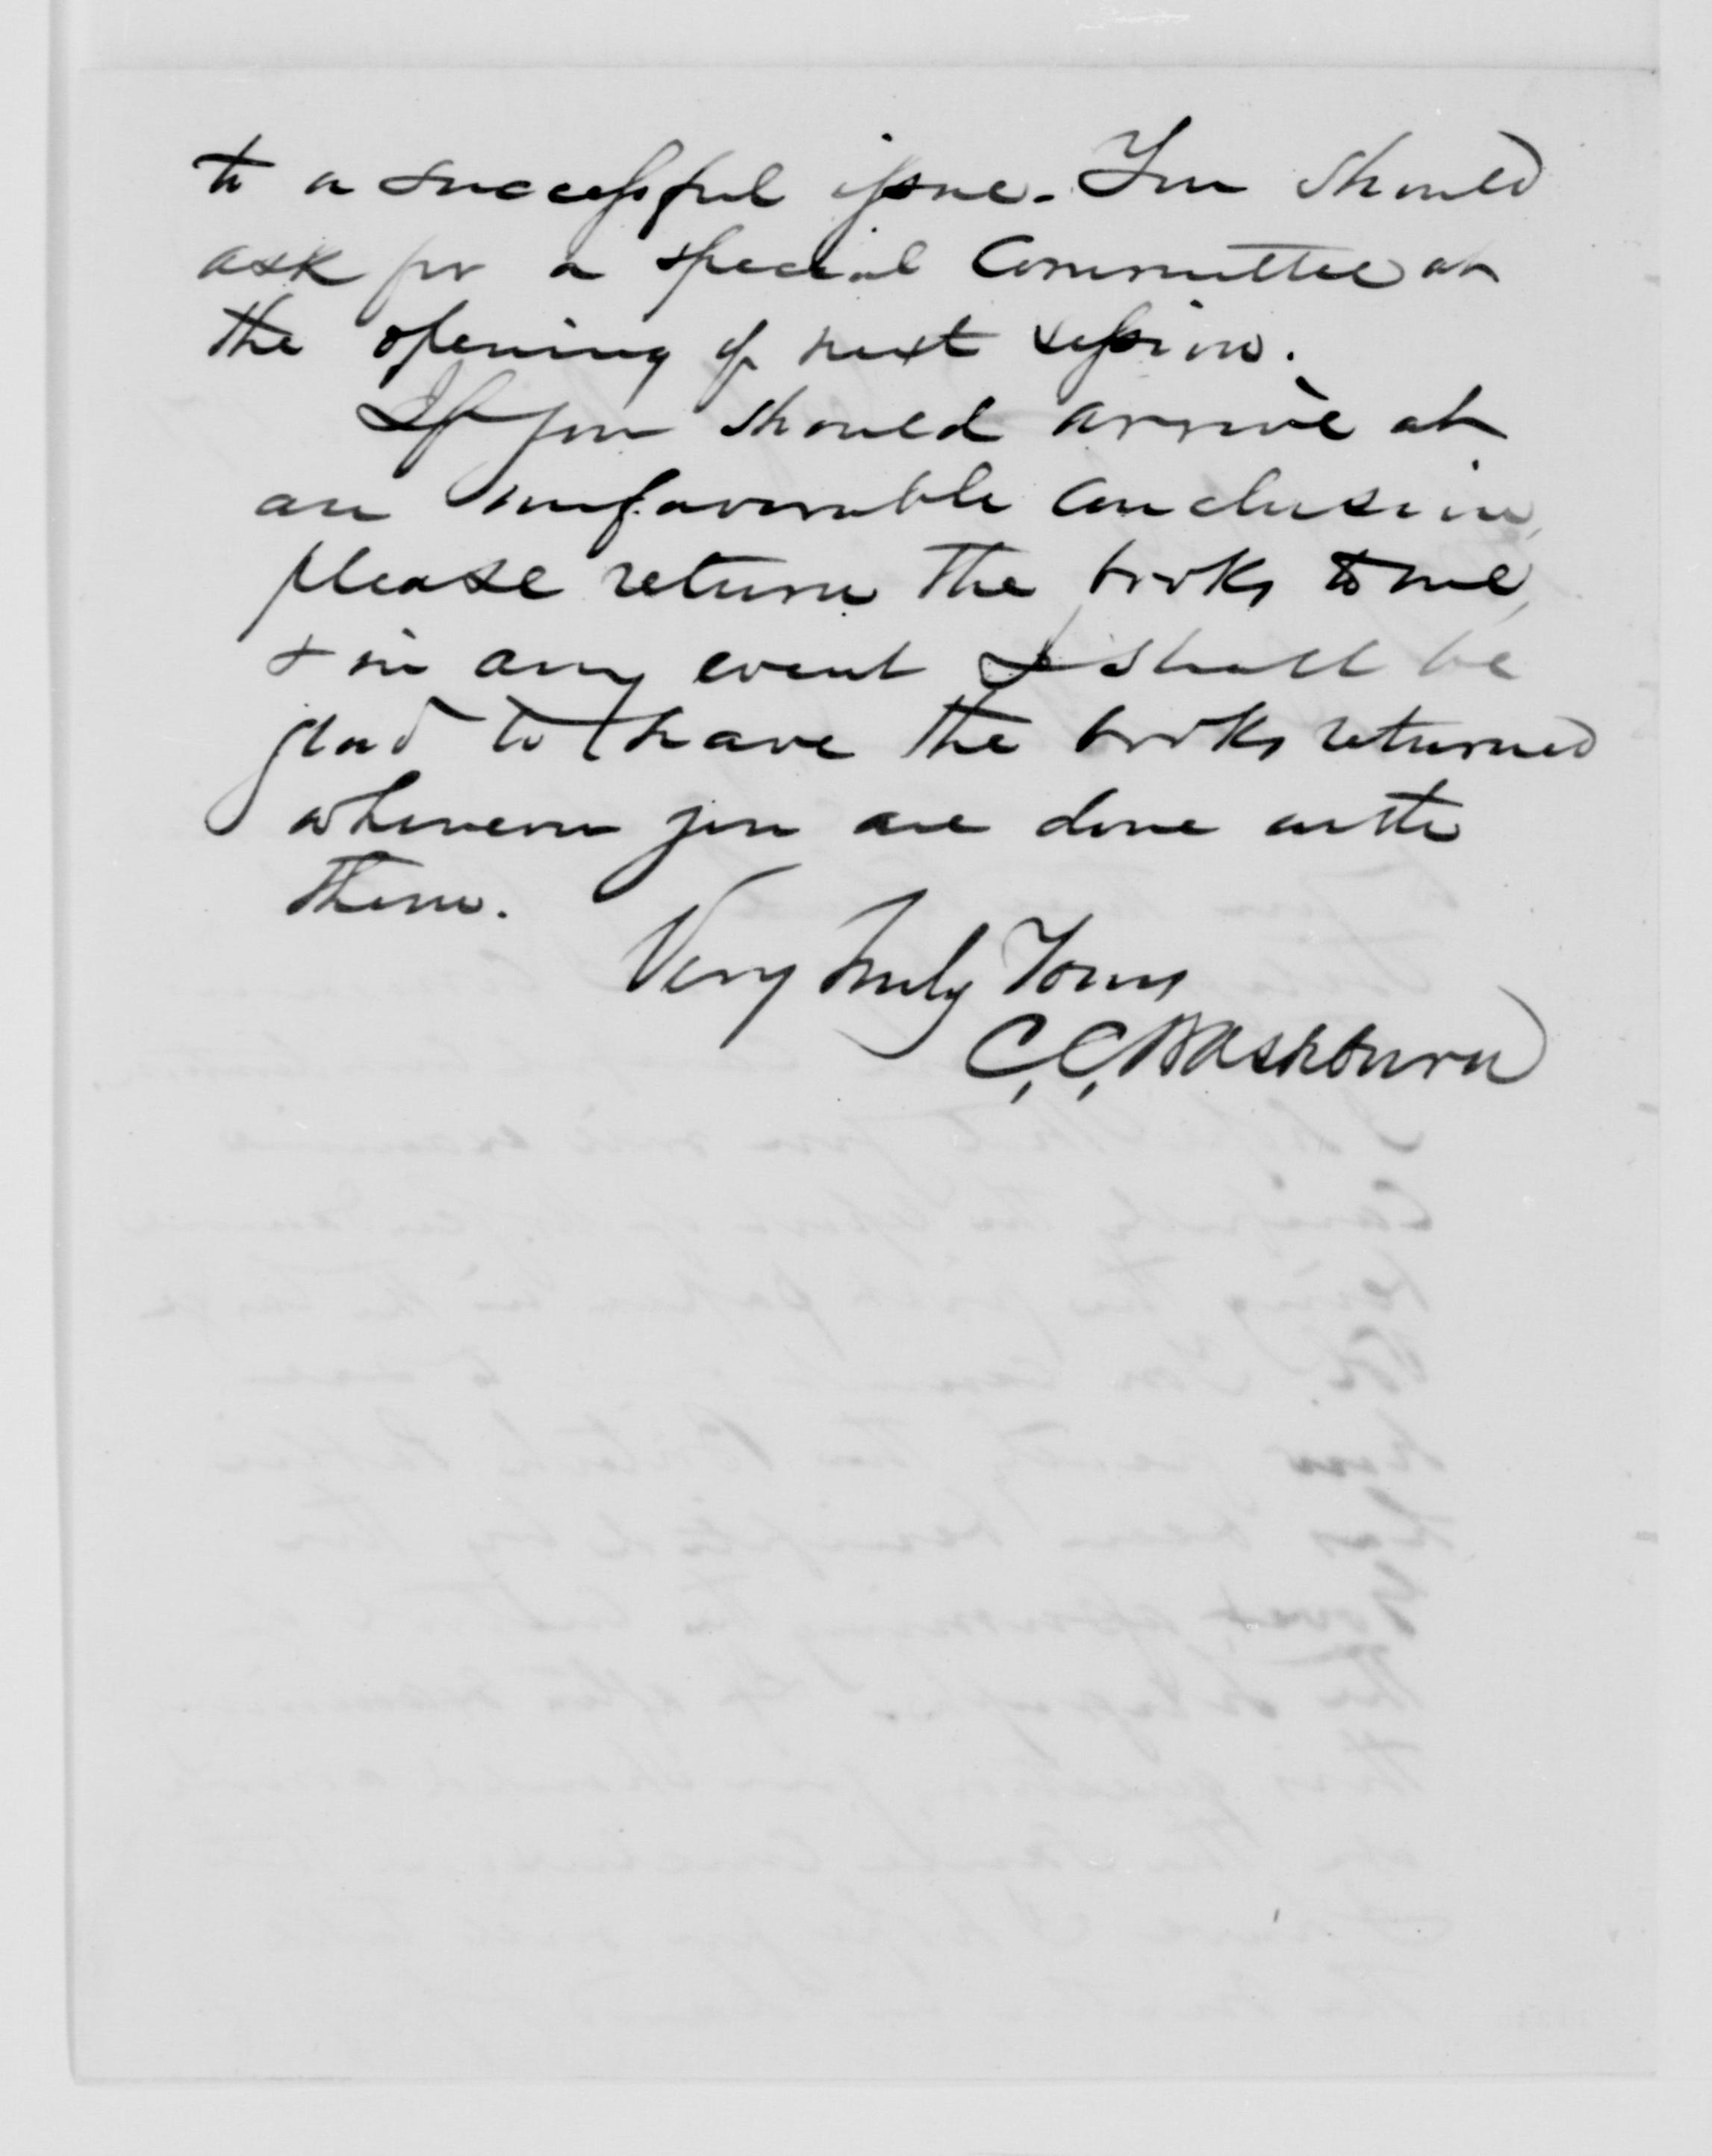 to a successful issue. You should
ask for a special Committee at
the opening of next session.
If you should arrive at
an unfavorable conclusion,
please return the books to me,
& in any event I shall be
glad to have the books returned
whenever you are done with
them.
Very truly Yours
C. C. Washburn